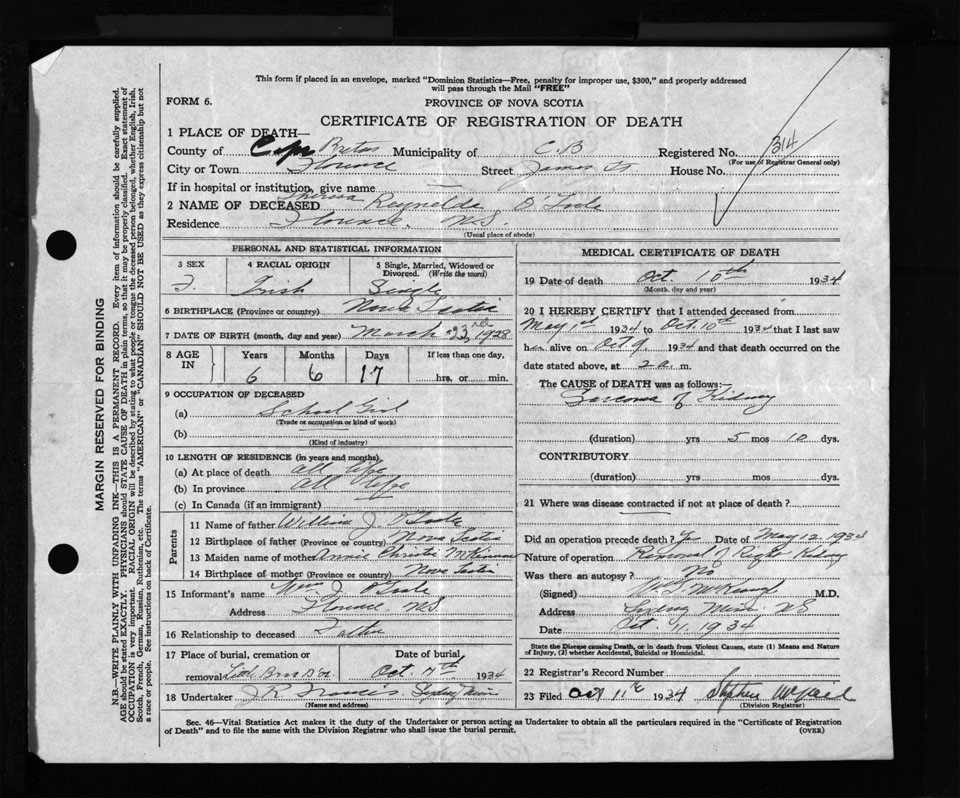 This form if placed in an envelope, marked "Dominion Statistics—Free, penalty for improper use, $300," and properly addressed
will pass through the Mail "FREE"
FORM 6.
PROVINCE OF NOVA SCOTIA
CERTIFICATE OF REGISTRATION OF DEATH
1 PLACE OF DEATH—
County of Cape Breton Municipality of C.B Registered No. 314
(For use of Registrar General only)
City or Town Florence Street James St House No.
If in hospital or institution, give name —
2 NAME OF DECEASED Theresa Reynelda O'Toole
Residence Florence. N.S.
(Usual place of abode)
PERSONAL AND STATISTICAL INFORMATION
3 SEX 4 RACIAL ORIGIN 5 Single, Married, Widowed or Divorced. (Write the word)
F. Irish Single
6 BIRTHPLACE (Province or country) Nova Scotia
7 DATE OF BIRTH (month, day and year) March 23rd 1928
8 AGE IN Years Months Days If less than one day,
6 6 17 hrs. or min.
9 OCCUPATION OF DECEASED
(a) School Girl
(Trade or occupation or kind of work)
(b)
(Kind of industry)
10 LENGTH OF RESIDENCE (in years and months)
(a) At place of death all life
(b) In province All life
(c) In Canada (if an immigrant)
Parents
11 Name of father William J. O'Toole
12 Birthplace of father (Province or country) Nova Scotia
13 Maiden name of mother Annie Christie McKinnon
14 Birthplace of mother (Province or country) Nova Scotia
15 Informant's name Wm J O'Toole
Address Florence NS
16 Relationship to deceased Father
17 Place of burial, cremation or removal Date of burial
Oct 11th 1934
18 Undertaker J.R. Francis Sydney Mines
(Name and address)
MEDICAL CERTIFICATE OF DEATH
19 Date of death Oct 10th 1934
(Month, day and year)
20 I HEREBY CERTIFY that I attended deceased from
May 1st 1934 to Oct. 10th 1934 that I last saw
her alive on Oct 9 1934 and that death occurred on the
date stated above, at 2 a m.
The CAUSE of DEATH was as follows:
Sarcoma of Kidney
(duration) yrs 5 mos 10 dys.
CONTRIBUTORY
(duration) yrs mos dys.
21 Where was disease contracted if not at place of death?
Did an operation precede death? Yes Date of May 12 1934
Nature of operation Removal of Right Kidney
Was there an autopsy? No
(Signed) M.D.
Address Sydney Mines NS
Date Oct 11. 1934
State the Disease causing Death, or in death from Violent Causes, state (1) Means and Nature
of Injury, (2) whether Accidental, Suicidal or Homicidal.
22 Registrar's Record Number
23 Filed Oct 11th 1934 Stephen
(Division Registrar)
Sec. 46—Vital Statistics Act makes it the duty of the Undertaker or person acting as Undertaker to obtain all the particulars required in the "Certificate of Registration
of Death" and to file the same with the Division Registrar who shall issue the burial permit. (OVER)
MARGIN RESERVED FOR BINDING
N.B.—WRITE PLAINLY WITH UNFADING INK—THIS IS A PERMANENT RECORD. Every item of information should be carefully supplied.
AGE should be stated EXACTLY. PHYSICIANS should STATE CAUSE OF DEATH in plain terms, so that it may be properly classified. Exact statement of
OCCUPATION is very important. RACIAL ORIGIN will be described by stating to what people or tongue the deceased person belonged, whether English, Irish,
Scotch, French, German, Russian, Ruthenian, etc. The terms "AMERICAN" or "CANADIAN" SHOULD NOT BE USED as they express citizenship but not
a race or people. See instructions on back of Certificate.